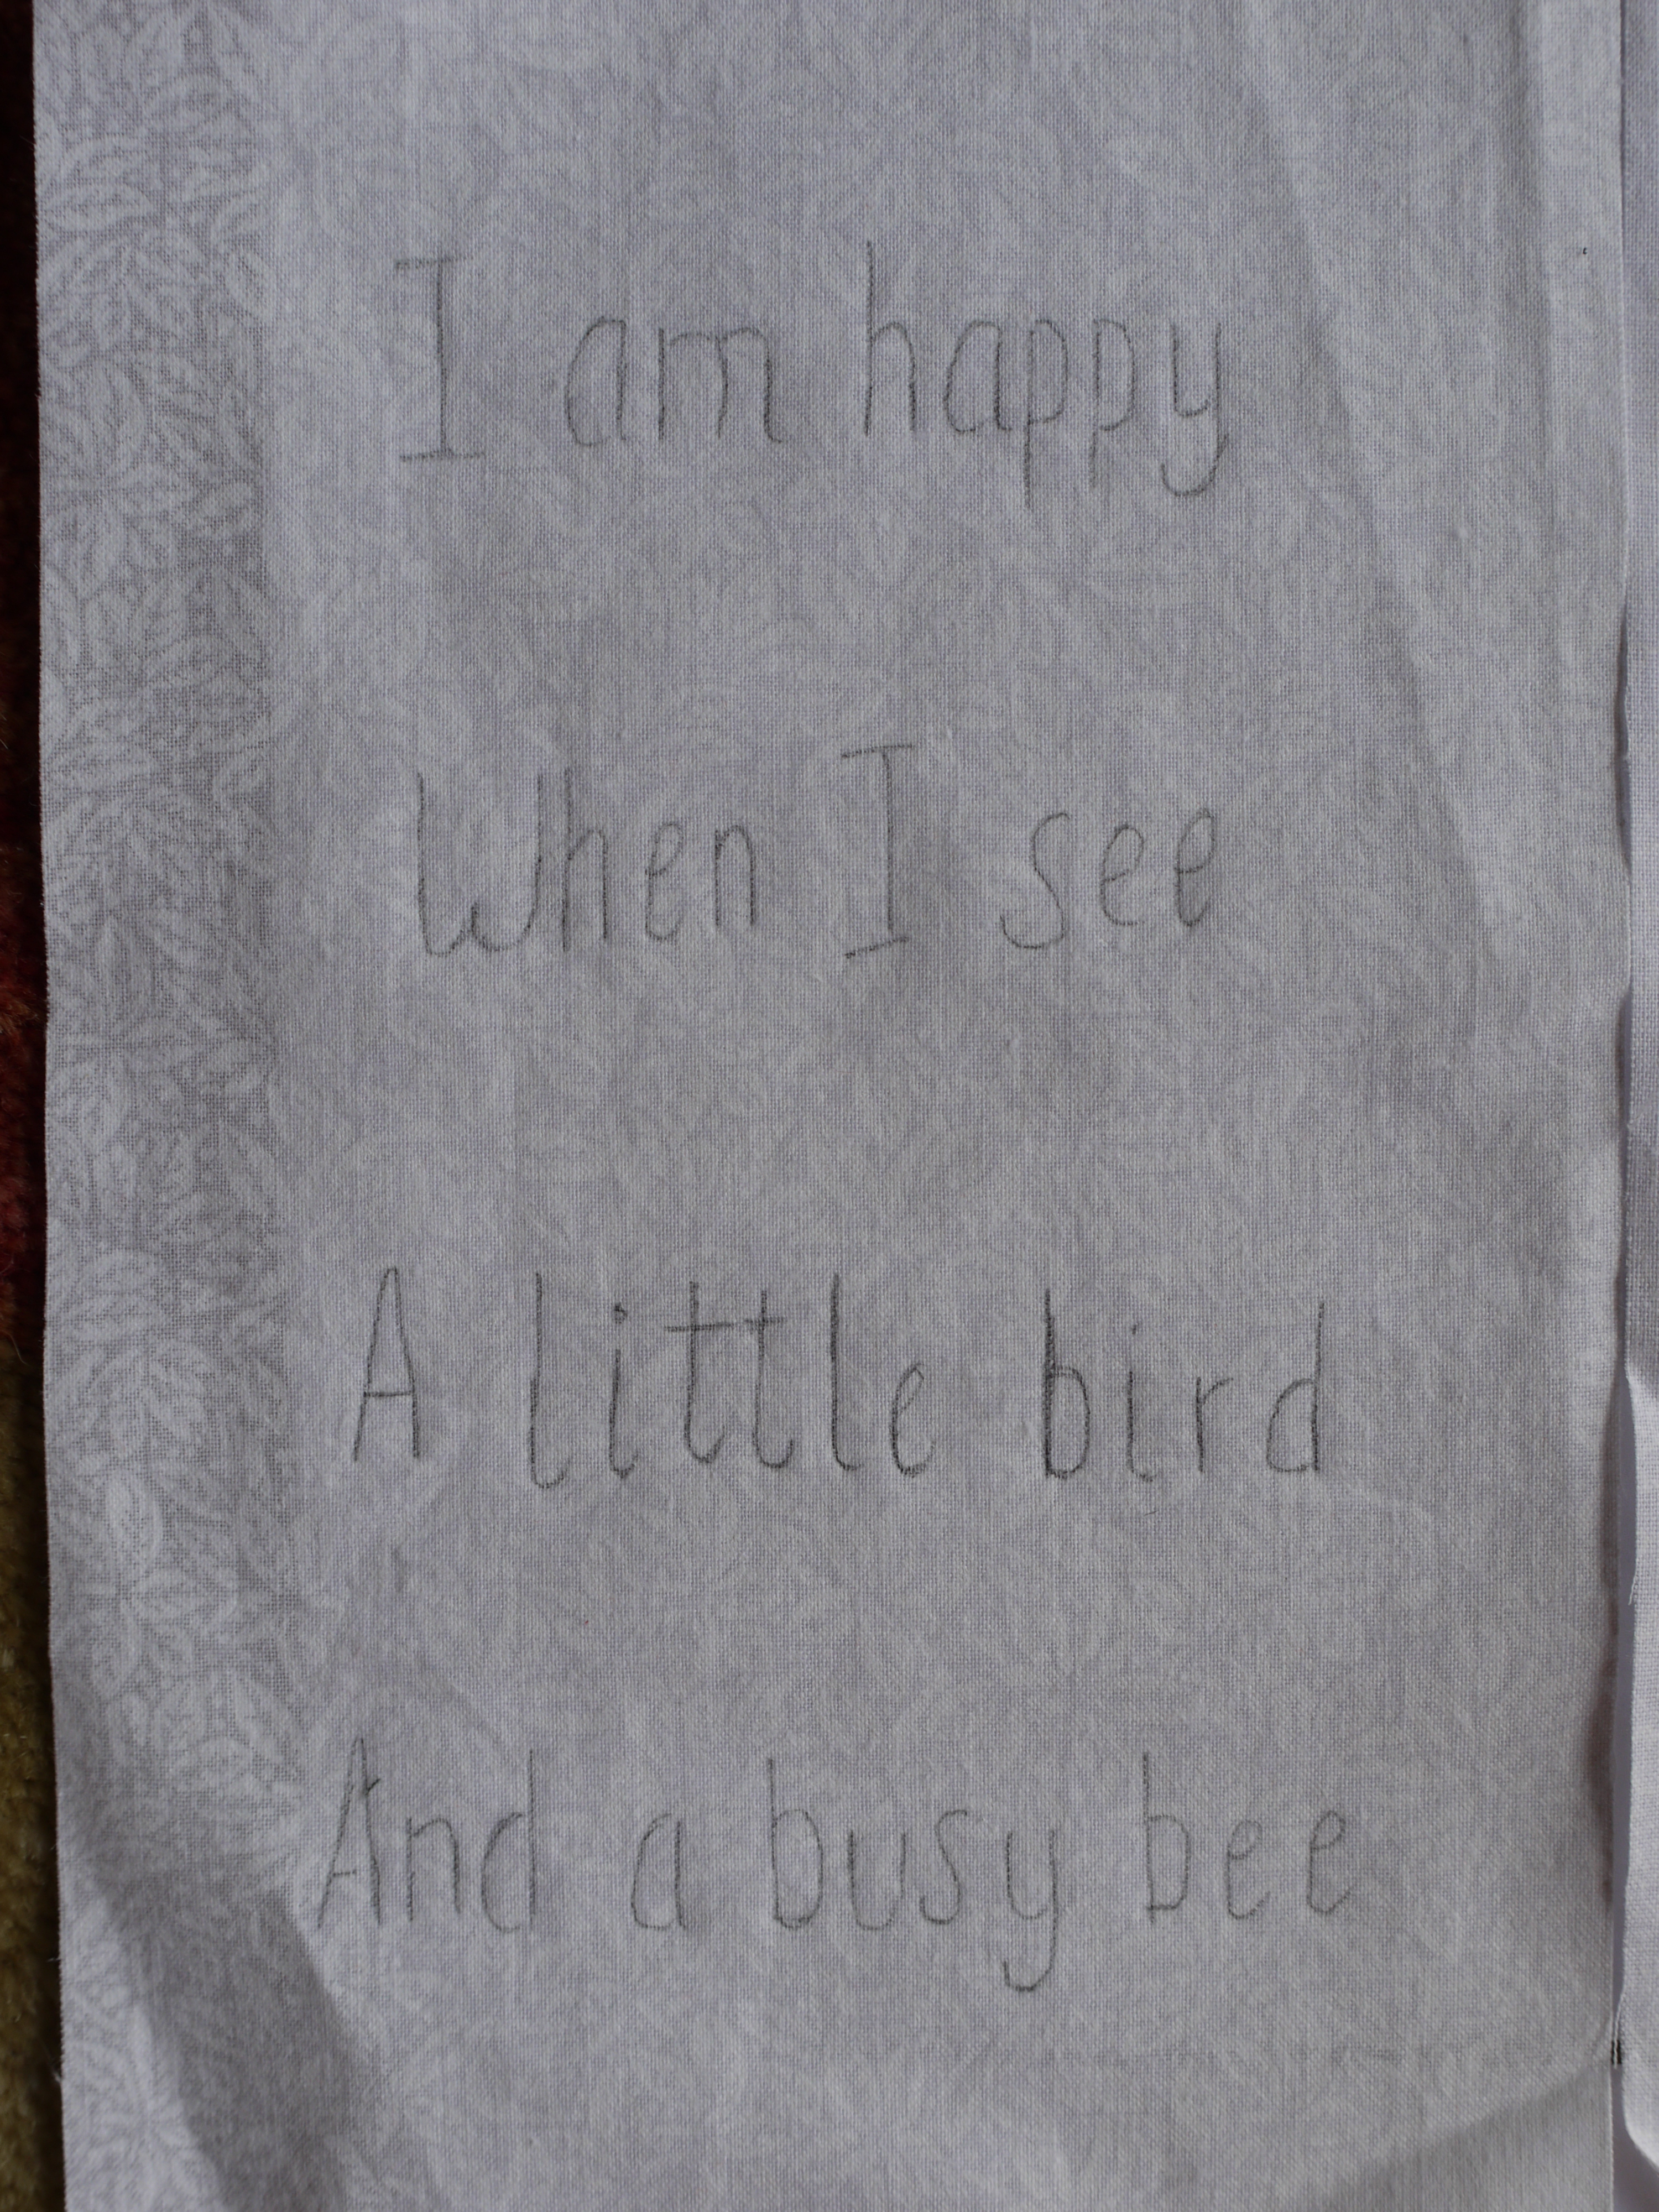 I am happy
When I see
A little bird
And a busy bee